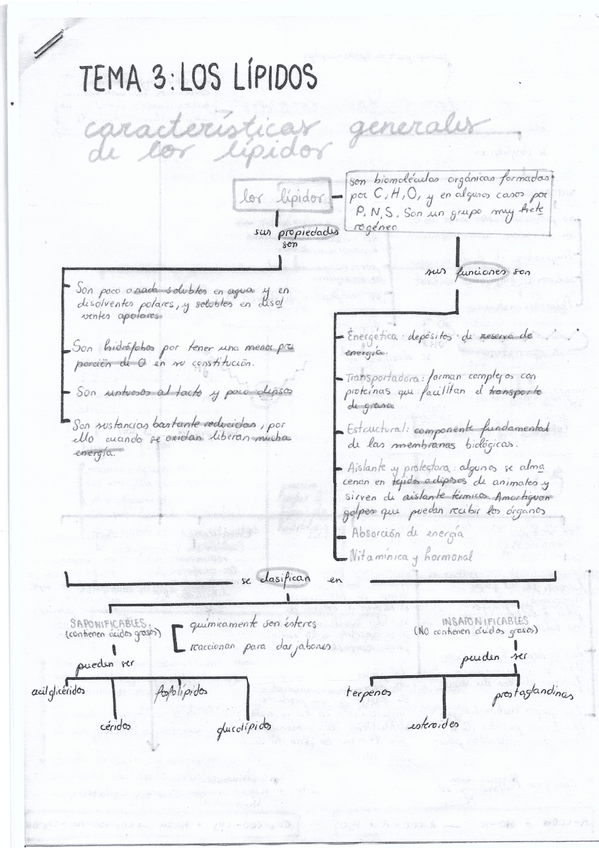 TEMA 3: LOS LÍPIDOS
características generales
de los lípidos
los lípidos
son biomoléculas orgánicas formadas
por C, H, O, y en algunos casos por
P, N, S. Son un grupo muy hete
rogéneo
sus propiedades
son
Son poco o nada solubles en agua y en
disolventes polares, y solubles en disol
ventes apolares.
Son hidrófobos por tener una menor pro
porción de O en su constitución.
Son untuosos al tacto y poco densos
Son sustancias bastante reducidas, por
ello cuando se oxidan liberan mucha
energía.
sus funciones son
Energética: depósitos de reserva de
energía.
Transportadora: forman complejos con
proteínas que facilitan el transporte
de grasa
Estructural: componente fundamental
de las membranas biológicas.
Aislante y protectora: algunos se alma
cenan en tejidos adiposos de animales y
sirven de aislante térmico. Amortiguar
golpes que puedan recibir los órganos
Absorción de energía
Vitamínica y hormonal
se clasifican en
SAPONIFICABLES
(contienen ácidos grasos)
químicamente son ésteres
reaccionan para dar jabones
pueden ser
acilglicéridos
céridos
fosfolípidos
glucolípidos
INSAPONIFICABLES
(NO contienen ácidos grasos)
pueden ser
terpenos
esteroides
prostaglandinas